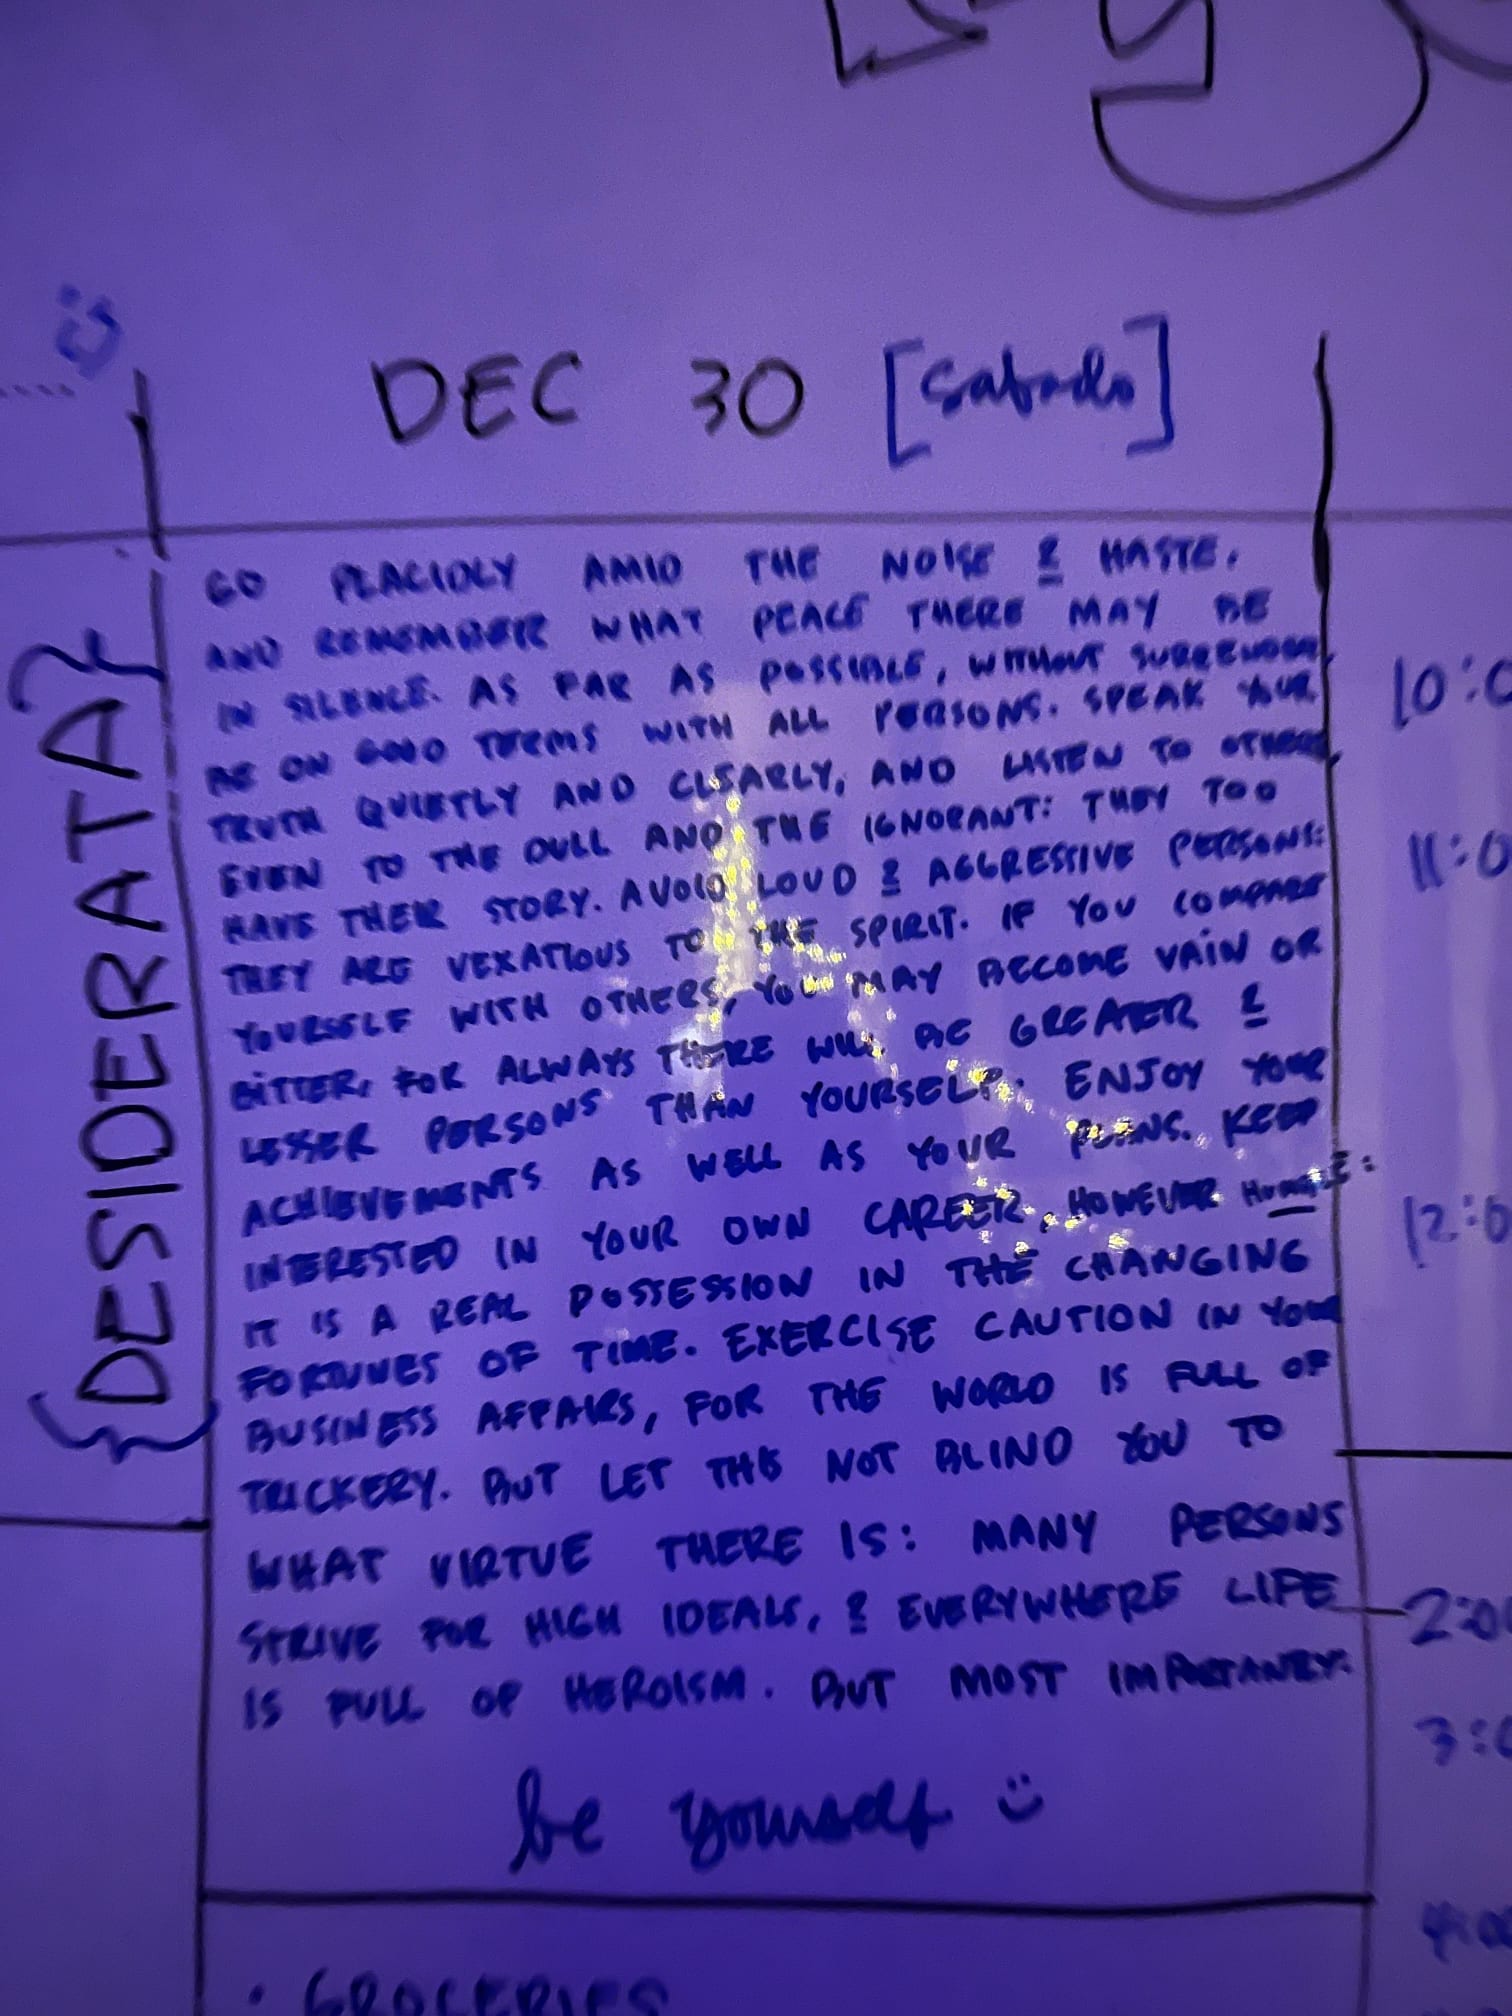 DEC 30 [sabado]
{DESIDERATA}
GO PLACIDLY AMID THE NOISE & HASTE,
AND REMEMBER WHAT PEACE THERE MAY BE
IN SILENCE. AS FAR AS POSSIBLE, WITHOUT SURRENDER,
BE ON GOOD TERMS WITH ALL PERSONS. SPEAK YOUR
TRUTH QUIETLY AND CLEARLY, AND LISTEN TO OTHERS,
EVEN TO THE DULL AND THE IGNORANT: THEY TOO
HAVE THEIR STORY. AVOID LOUD & AGGRESSIVE PERSONS:
THEY ARE VEXATIOUS TO THE SPIRIT. IF YOU COMPARE
YOURSELF WITH OTHERS, YOU MAY BECOME VAIN OR
BITTER, FOR ALWAYS THERE WILL BE GREATER &
LESSER PERSONS THAN YOURSELF. ENJOY YOUR
ACHIEVEMENTS AS WELL AS YOUR PLANS. KEEP
INTERESTED IN YOUR OWN CAREER, HOWEVER HUMBLE:
IT IS A REAL POSSESSION IN THE CHANGING
FORTUNES OF TIME. EXERCISE CAUTION IN YOUR
BUSINESS AFFAIRS, FOR THE WORLD IS FULL OF
TRICKERY. BUT LET THIS NOT BLIND YOU TO
WHAT VIRTUE THERE IS: MANY PERSONS
STRIVE FOR HIGH IDEALS, & EVERYWHERE LIFE
IS FULL OF HEROISM. BUT MOST IMPORTANTLY:
be yourself :)
• GROCERIES
10:0
11:0
12:0
2:00
3:0
4:00